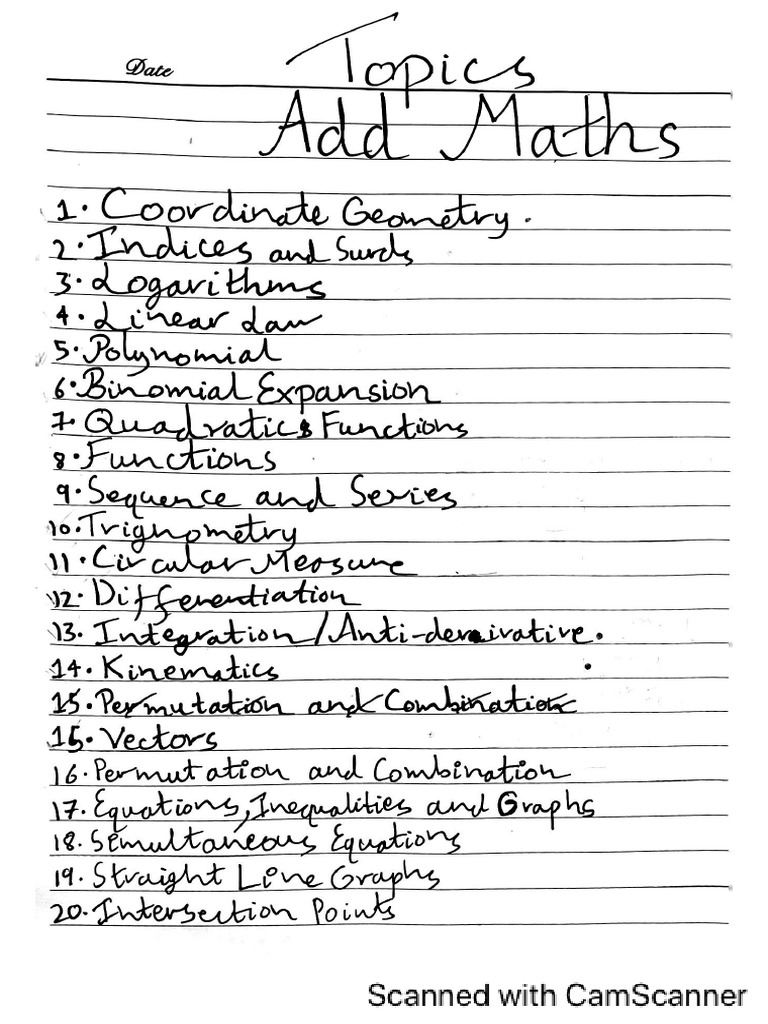 Date Topics
Add Maths
1. Coordinate Geometry.
2. Indices and Surds
3. Logarithms
4. Linear Law
5. Polynomial
6. Binomial Expansion
7. Quadratics Functions
8. Functions
9. Sequence and Series
10. Trignometry
11. Circular Measure
12. Differentiation
13. Integration/Anti-derivative.
14. Kinematics
15. Permutation and Combination
15. Vectors
16. Permutation and Combination
17. Equations, Inequalities and Graphs
18. Semultaneous Equations
19. Straight Line Graphs
20. Intersection Points
Scanned with CamScanner